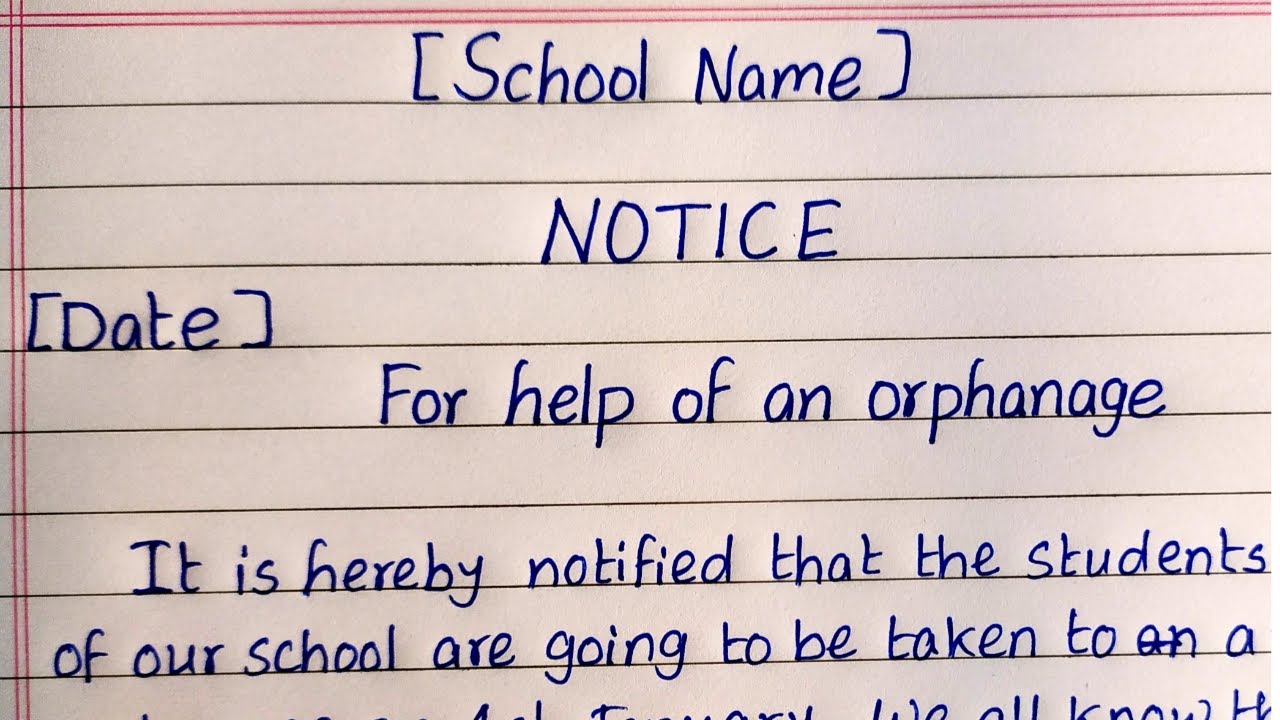 [School Name]
NOTICE
[Date]
For help of an orphanage
It is hereby notified that the students
of our school are going to be taken to an a
January. We all know